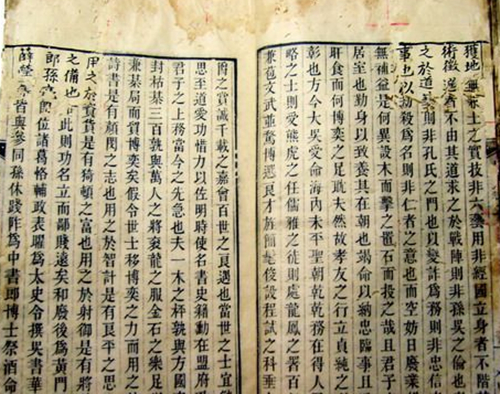 獲地無兼土之實技非六藝用非經國立身者不階
術徵選者不由其道求之於戰陣則非孫吳之倫也
之於道藝則非孔氏之門也以變詐為務則非忠信
事也以劫殺為名則非仁者之意也而空妨日廢業
無補益是何異設木而擊之置石而投之哉且君子
居室也勤身以致養其在朝也竭命以納忠臨事且
旰食而何博奕之足耽夫然故孝友之行立貞純之
彰也方今大吳受命海內未平聖朝乾乾務在得人
略之士則受熊虎之任儒雅之徒則處龍鳳之署百
兼苞文武並騖博選良才旌簡髦俊設程試之科垂
爵之賞誠千載之嘉會百世之良遇也當世之士宜
思至道愛功惜力以佐明時使名書史籍勳在盟府
君子之上務當今之先急也夫一木之枰孰與方國
封枯棊三百孰與萬人之將袞龍之服金石之樂足
兼棊局而貿博奕矣假令世士移博奕之力而用之
詩書是有顏閔之志也用之於智計是有良平之
用之於資貨是有猗頓之富也用之於射御是有將
之備也此則功名立而鄙賤遠矣和廢後為黃門
郎孫即位諸葛恪輔政表曜為太史令撰吳書華
薛瑩皆與參同孫休踐阼為中書郎博士祭酒命